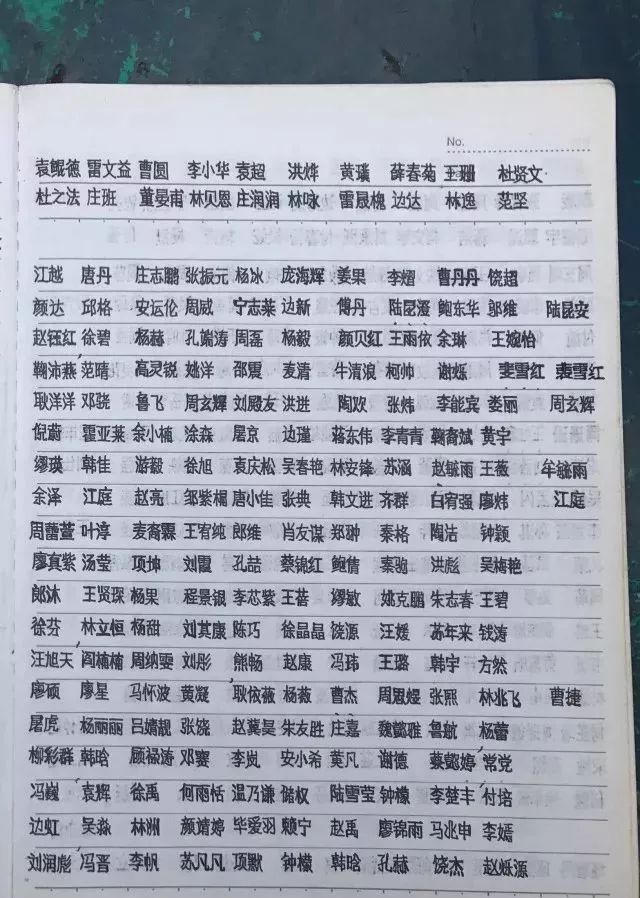 No.
袁鲲德 雷文益 曹圆 李小华 袁超 洪烨 黄璞 薛春菊 王珊 杜贤文
杜之法 庄班 董晏甫 林贝恩 庄润润 林咏 雷晟槐 边达 林逸 范坚
江越 唐丹 庄志鹏 张振元 杨冰 庞海辉 姜果 李熠 曹丹丹 饶超
颜达 邱格 安运伦 周威 宁志莱 边新 傅丹 陆昆漫 鲍东华 邬维 陆昆安
赵钰红 徐碧 杨赫 孔端涛 周磊 杨毅 颜贝红 王雨依 余琳 王婉怡
鞠沛燕 范晴 高灵锐 姚洋 邵震 麦清 牛清浪 柯帅 谢烁 裴雪红
耿洋洋 邓骁 鲁飞 周玄辉 刘殿友 洪进 陶欢 张炜 李能宾 娄丽 周玄辉
倪蔚 霍亚莱 余小楠 涂森 屠京 边瑾 蒋东伟 李青青 鞠裔斌 黄宇
缪瑛 韩佳 游毅 徐旭 袁庆松 吴春艳 林安锋 苏涵 赵毓雨 王薇 牟毓雨
金泽 江庭 赵亮 邹紫桐 唐小佳 张典 韩文进 齐群 白宥强 廖炜 江庭
周蕾萱 叶淳 麦裔霖 王宥纯 郎维 肖友谋 郑翀 秦格 陶洁 钟颖
廖真紫 汤莹 项坤 刘霞 孔喆 蔡锦红 鲍倩 秦驰 洪彪 吴梅艳
郎沐 王贤琛 杨果 程景银 李芯紫 王菩 缪敏 姚克鹏 朱志春 王碧
徐芬 林立恒 杨甜 刘其康 陈巧 徐晶晶 饶源 汪媛 苏年来 钱涛
汪旭天 阎楠楠 周纳雯 刘彤 熊畅 赵康 冯玮 王璐 韩宇 方然
廖硕 廖星 马怀波 黄凝 耿依薇 杨薇 曹杰 周思煜 张熙 林兆飞 曹捷
屠虎 杨丽丽 吕嫱靓 张饶 赵冀昊 朱友胜 庄嘉 魏懿雅 鲁航 杨蕾
柳彩群 韩晗 顾禄涛 邓赛 李岚 安小希 黄凡 谢德 蔡懿婷 常党
冯巍 袁辉 徐禹 何雨恬 温乃谦 储权 陆雪莹 钟檬 李楚丰 付培
边虹 吴淼 林洲 颜靖婷 毕爱羽 赖宁 赵禹 廖锦雨 马兆申 李嫣
刘润彪 冯晋 李帆 苏凡凡 项默 钟檬 韩晗 孔赫 饶杰 赵烁源